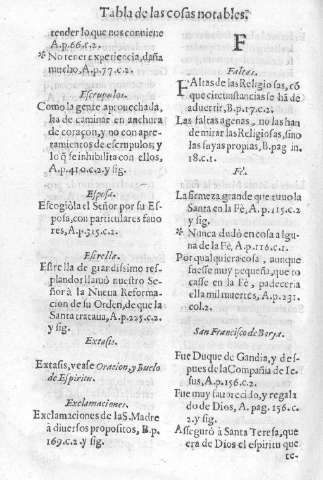 Tabla de las cosas notables.
tender lo que nos conuiene
A.p.66.c.2.
* No tener experiencia, daña
mucho, A.p.77.c.2.
Escrupulos.
Como la gente aprouechada,
ha de caminar en anchura
de coraçon, y no con apre-
tamientos de escrupulos; y
lo q̃ se inhibilita con ellos,
A.p.410.c.2.y sig.
Esposa.
Escogiòla el Señor por su Es-
posa, con particulares fauo
res, A.p.315.c.2.
Estrella.
Estrella de grãdissimo res-
plandor lleuò nuestro Se-
ñor à la Nueua Reformaciõ
de su Orden, de que la
Santa trataua, A.p.225.c.2.
y sig.
Extasis.
Extasis, vease Oracion, y Buelo
de Espiritu.
Exclamaciones.
Exclamaciones de la S. Madre
à diuersos propositos, B.p.
169.c.2.y sig.
F
Faltas.
FAltas de las Religiosas, cõ
que circunstancias se hã de
aduertir, B.p.17.c.2.
Las faltas agenas, no las han
de mirar las Religiosas, sino
las suyas propias, B.pag in.
18.c.1.
Fè.
La firmeza grande que tuuo la
Santa en la Fè, A.p.115.c.2
y sig.
* Nunca dudò en cosa alguna
de la Fè, A.p.116.c.1.
Por qualquiera cosa, aunque
fuesse muy pequeña, que to
casse en la Fè, padeceria
ella mil muertes, A.p.231.
col.2.
San Francisco de Borja.
Fue Duque de Gandia, y des-
pues de la Compañia de Ie-
sus, A.p.156.c.2.
Fue muy fauorecido, y regala
do de Dios, A.pag.156.c.
2.y sig.
Assegurò à Santa Teresa, que
era de Dios el espiritu que
te-